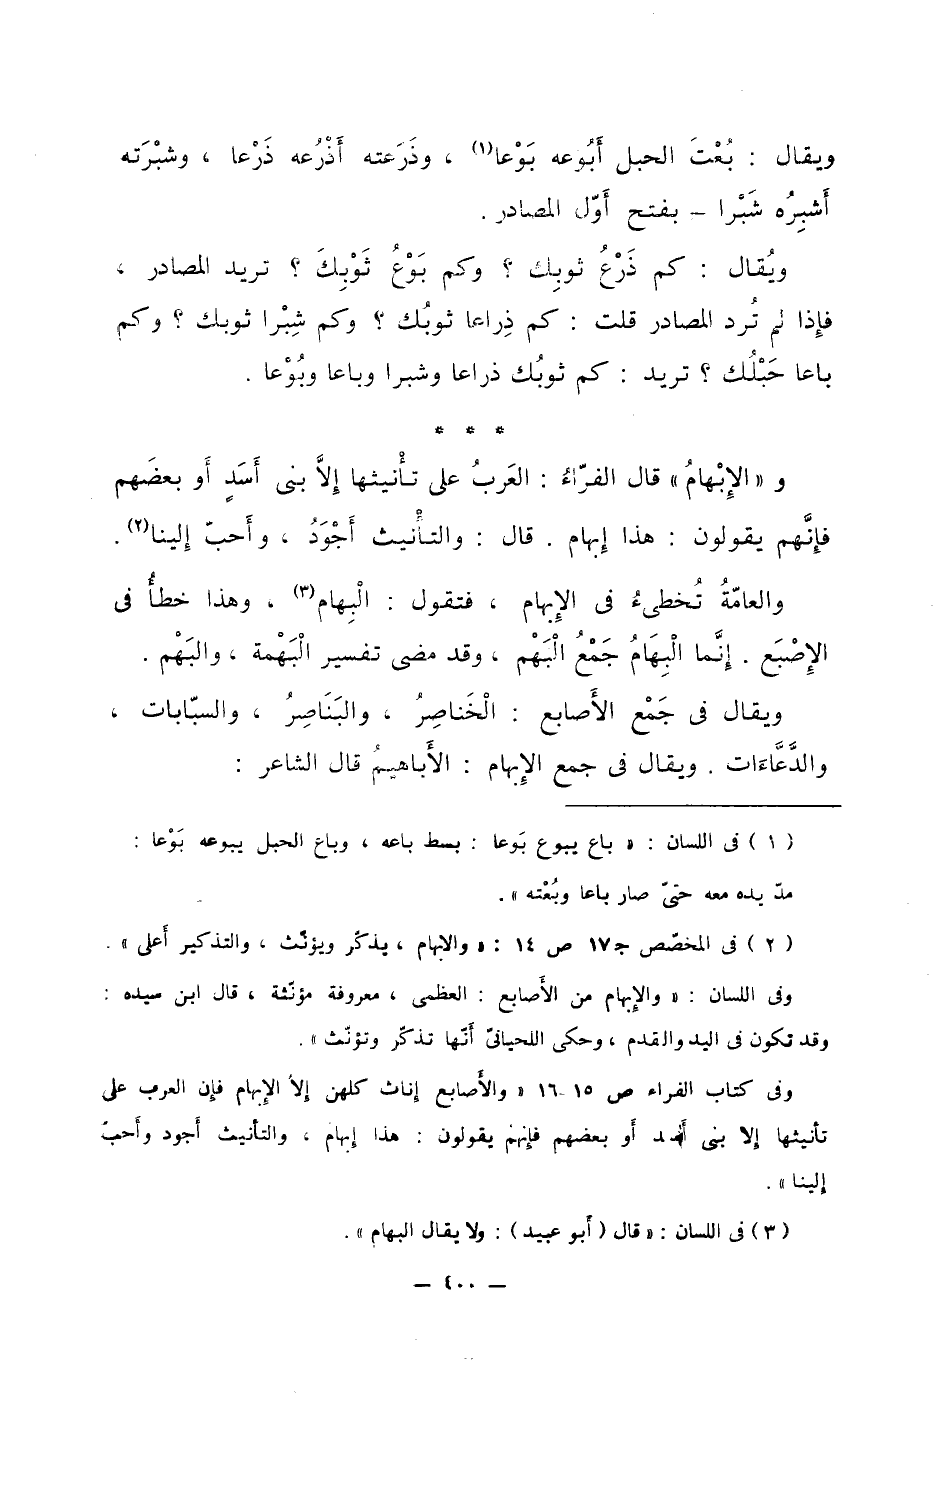 ويقال : بُعْتَ الحبل أَبُوعه بَوْعا(١) ، وذَرَعته أَذْرُعه ذَرْعا ، وشبْرَته
أَشبِرُه شَبْرا – بفتح أَوّل المصادر .
ويُقال : كم ذَرْعُ ثوبِك ؟ وكم بَوْعُ ثَوْبِكَ ؟ تريد المصادر ،
فإِذا لم تُرد المصادر قلت : كم ذِراعا ثوبُك ؟ وكم شِبْرا ثوبك ؟ وكم
باعا حَبْلُك ؟ تريد : كم ثوبُك ذراعا وشبرا وباعا وبُوْعا .
* * *
و « الإِبْهامُ » قال الفرّاءُ : العَربُ على تأْنيثها إِلاَّ بنى أَسَدٍ أَو بعضَهم
فإِنَّهم يقولون : هذا إِبهام . قال : والتأْنيث أَجْوَدُ ، وأَحبّ إِلينا(٢) .
والعامّةُ تُخطىءُ فى الإِبهام ، فتقول : الْبِهام(٣) ، وهذا خطأٌ فى
الإِصْبَع . إِنَّما الْبِهَامُ جَمْعُ الْبَهْم ، وقد مضى تفسير الْبَهْمة ، والبَهْم .
ويقال فى جَمْع الأَصابع : الْخَناصِرُ ، والبَنَاصِرُ ، والسبّابات ،
والدَّعَّاءَات . ويقال فى جمع الإِبهام : الأَباهيمُ قال الشاعر :
( ١ ) فى اللسان : « باع يبوع بَوعا : بسط باعه ، وباع الحبل يبوعه بَوْعا :
مدّ يده معه حتىّ صار باعا وبُعْته » .
( ٢ ) فى المخصّص ج١٧ ص ١٤ : « والابهام ، يذكّر ويؤنّث ، والتذكير أَعلى » .
وفى اللسان : « والإِبهام من الأَصابع : العظمى ، معروفة مؤنّثة ، قال ابن سيده :
وقد تكون فى اليد والقدم ، وحكى اللحيانىّ أَنّها تذكّر وتؤنّث » .
وفى كتاب الفراء ص ١٥ـ١٦ « والأَصابع إناث كلهن إلاَّ الإِبهام فإن العرب على
تأنيثها إلا بنى أسد أو بعضهم فإنهم يقولون : هذا إبهام ، والتأنيث أجود وأحبّ
إلينا » .
( ٣ ) فى اللسان : « قال ( أَبو عبيد ) : ولا يقال البهام » .
– ٤٠٠ –